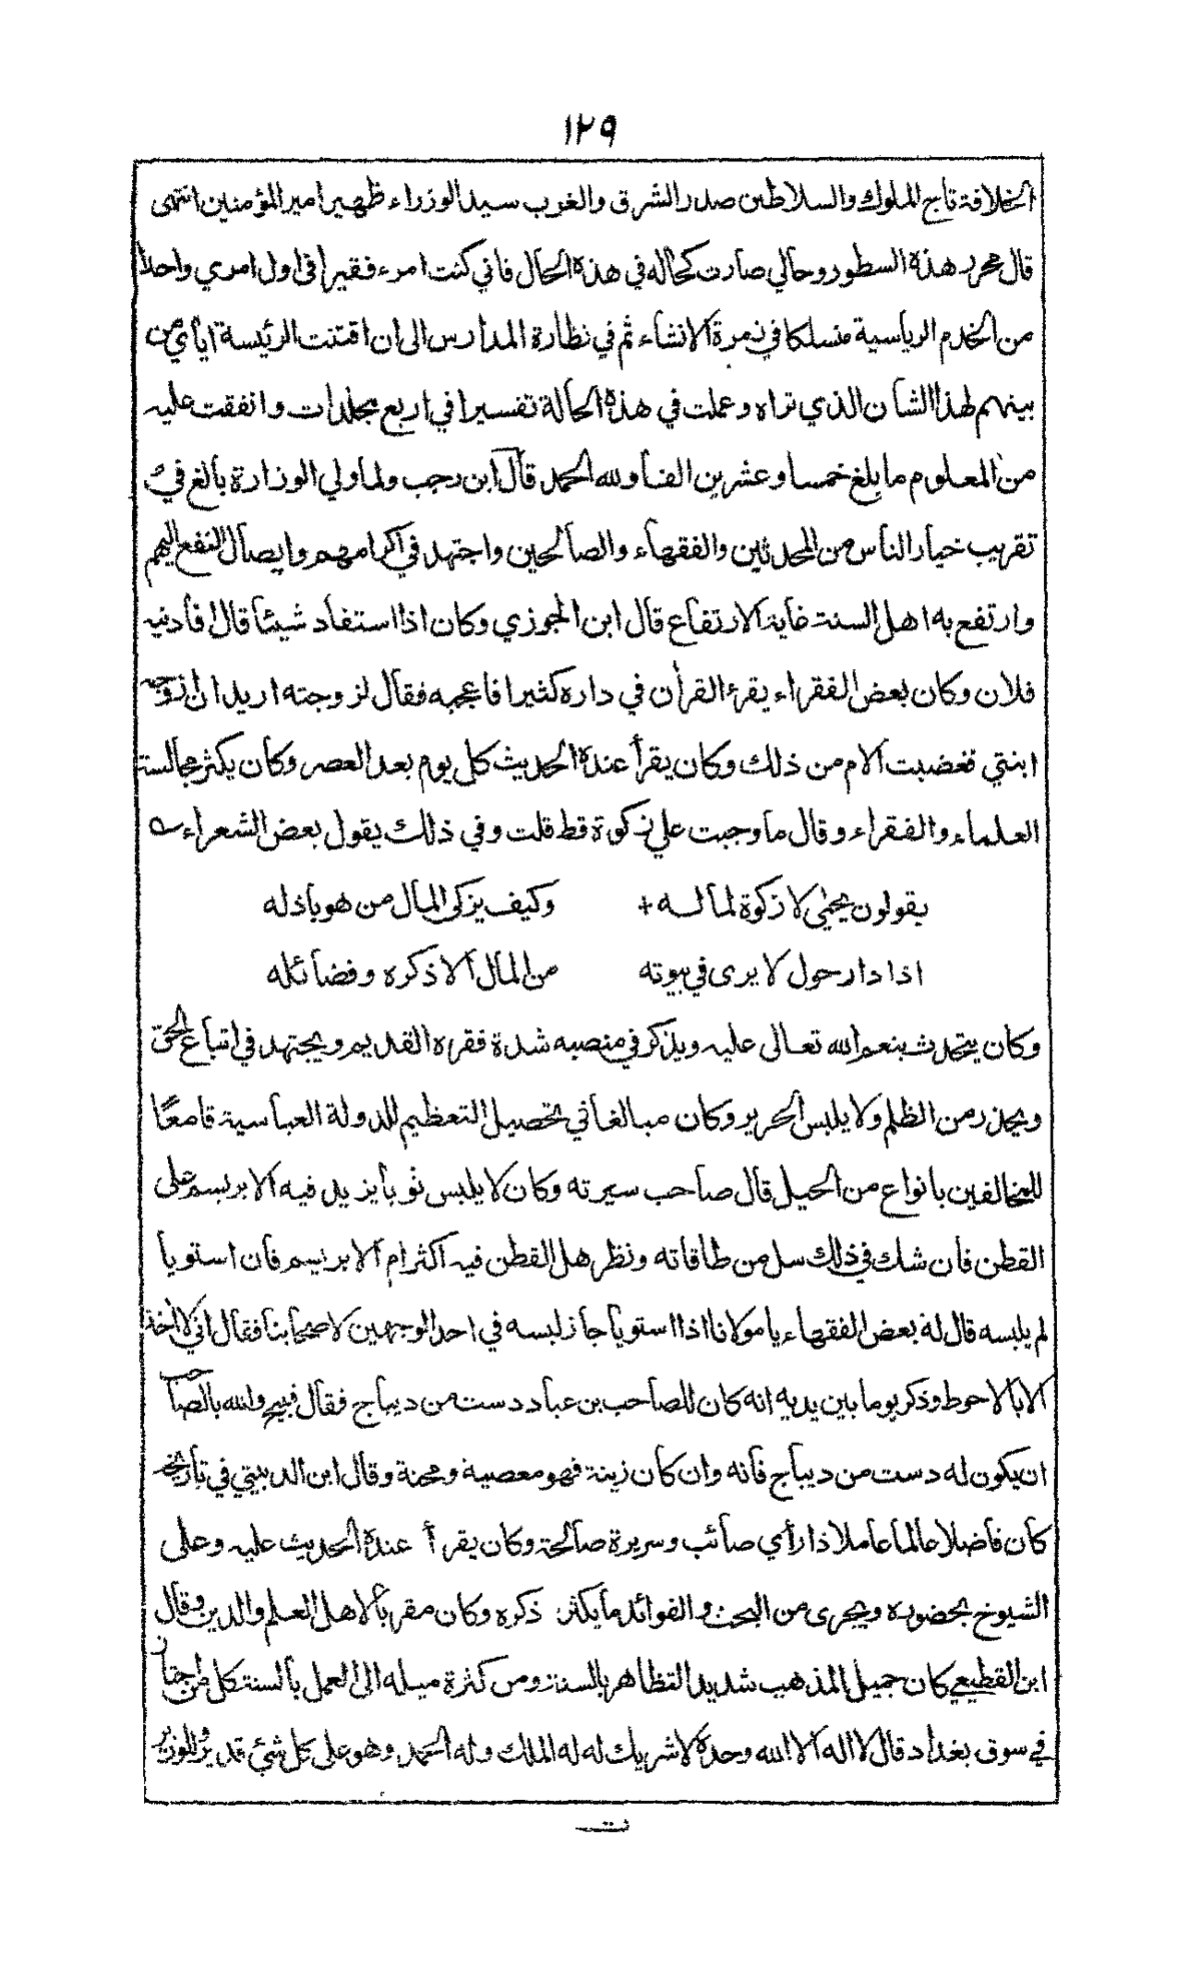 ١٢٩
الخلافة تاج الملوك والسلاطين صدر الشرق والغرب سيد الوزراء ظهير امير المؤمنين انتهى
قال محرر هذه السطور وحالي صارت كحاله في هذه الحال فاني كنت امرء فقيرا في اول امري واحدا
من الخدم الرياسية منسلكا في زمرة الانشاء ثم في نظارة المدارس الى ان اقتنت الرئيسة اياي من
بينهم لهذا الشان الذي تراه وعملت في هذه الحالة تفسيرا في اربع مجلدات وانفقت عليه
من المعلوم ما بلغ خمسا وعشرين الفا ولله الحمد قال ابن رجب ولما ولي الوزارة بالغ في
تقريب خيار الناس من المحدثين والفقهاء والصالحين واجتهد في اكرامهم وايصال النفع اليهم
وارتفع به اهل السنة غاية الارتفاع قال ابن الجوزي وكان اذا استفاد شيئا قال افادنيه
فلان وكان بعض الفقراء يقرء القرأن في داره كثيرا فاعجبه فقال لزوجته اريد ان ازوجه
ابنتي فغضبت الام من ذلك وكان يقرأ عنده الحديث كل يوم بعد العصر وكان يكثر مجالسة
العلماء والفقراء وقال ما وجبت علي زكوة قط قلت وفي ذلك يقول بعض الشعراء
يقولون يحيى لا زكوة لماله + وكيف يزكى المال من هو باذله
اذا دار حول لا يرى في بيوته من المال الا ذكره وفضائله
وكان يتحدث بنعم الله تعالى عليه ويذكر في منصبه شدة فقره القديم ويجتهد في اتباع الحق
ويحذر من الظلم ولا يلبس الحرير وكان مبالغا في تحصيل التعظيم للدولة العباسية قامعًا
للمخالفين بانواع من الحيل قال صاحب سيرته وكان لا يلبس ثوبا يزيد فيه الابريسم على
القطن فان شك في ذلك سل من طاقاته ونظر هل القطن فيه اكثر ام الابريسم فان استويا
لم يلبسه قال له بعض الفقهاء يا مولانا اذا استويا جاز لبسه في احد الوجهين لاصحابنا فقال اني لا أخذ
الا بالاحوط وذكر يوما بين يديه انه كان للصاحب بن عباد دست من ديباج فقال قبيح والله بالصاحب
ان يكون له دست من ديباج فانه وان كان زينة فهو معصية ومحنة وقال ابن الدبيثي في تاريخه
كان فاضلا عالما عاملا ذا رأي صائب وسريرة صالحة وكان يقرأ عنده الحديث عليه وعلى
الشيوخ بحضوره ويجرى من البحث والفوائد ما يكثر ذكره وكان مقربا لاهل العلم والدين وقال
ابن القطيعي كان جميل المذهب شديد التظاهر بالسنة ومن كثرة ميله الى العمل بالسنة كل من اجتاز
في سوق بغداد قال لا اله الا الله وحده لا شريك له له الملك وله الحمد وهو على كل شئ قدير وللوزير